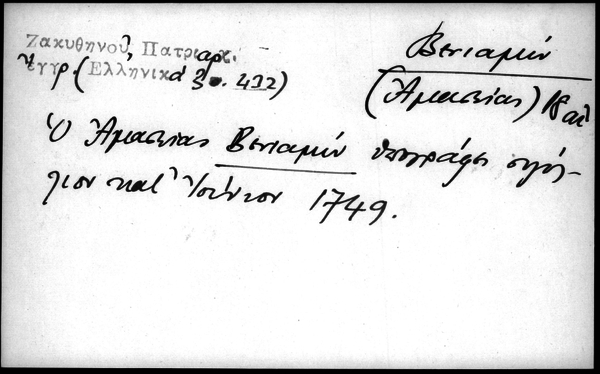 Ζακυθηνοῦ, Πατριαρχ.
ἔγγρ. (Ἑλληνικά 3ο. 432)
Βενιαμίν
(Ἀμασείας) 18 αἰ
Ὁ Ἀμασείας Βενιαμίν ὑπογράφει σιγίλ-
λιον κατ' Ἰούνιον 1749.